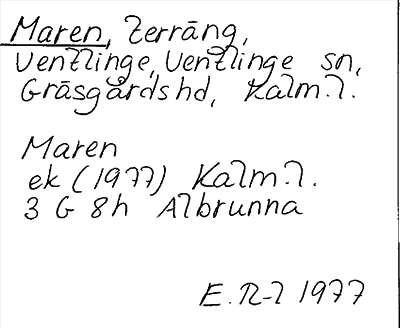 Maren, Terräng,
Ventlinge, Ventlinge sn,
Gräsgårds hd, Kalm. l.
Maren
ek (1977) Kalm. l.
3 G 8h Albrunna
E. R-l 1977